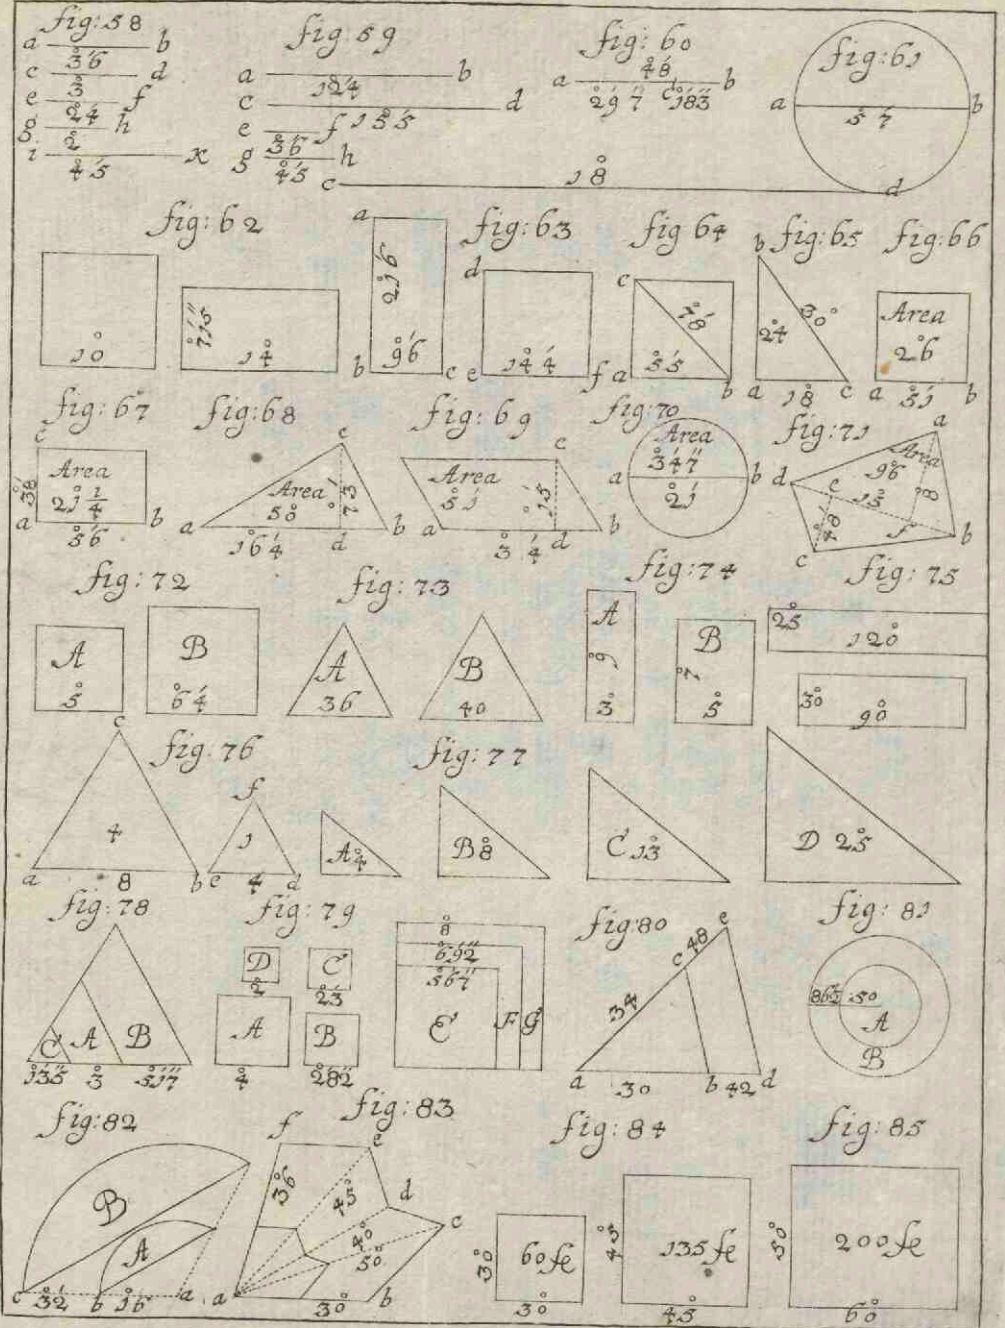 fig: 58
a b
3̊6́
c d
3̊
e f
2̊4́
g h
2̊
i x
4̊5́
fig: 59
a b
12̊4́
c d
15̊5́
e f
3̊6́
g h
4̊5́
fig: 60
4̊8́
a b
2̊9́7̋ c 1̊8́3̋
c d
18̊
fig: 61
a b
5̊7́
fig: 62
10̊
7̊1́5̋
14̊
a
2̊1́6̋
9̊6́
b c
fig: 63
d
14̊4́
e f
fig 64
c
7̊8́
5̊5́
a b
fig: 65
b
30°
24̊
a 18̊ c
fig: 66
Area
26̊
a 5̊1́ b
fig: 67
c
3̊8́
Area
21̊ 1/4
a b
5̊6́
fig: 68
c
Area
58̊
7̊3́
a d b
16̊4́
fig: 69
c
Area
5̊1́
1̊5́
a d b
3̊4́
fig: 70
Area
3̊4́7̋
a b
2̊1́
fig: 71
a
Area
96̊
d e
15̊
8̊
4̊8́
f b
c
fig: 72
A
5̊
B
6̊4́
fig: 73
A
36
B
40
fig: 74
A
9̊
3̊
B
7̊
5̊
fig: 75
25̊
120̊
30̊
90̊
fig: 76
c
4
a 8 b
f
1
e 4 d
fig: 77
A 4̊
B 8̊
C 13̊
D 25̊
fig: 78
C A B
1̊3́5̋ 3̊ 5̊1́7̋
fig: 79
D
2̊
C
2̊3́
A
4̊
B
2̊8́2̋
8̊
6̊9́2̋
5̊6́7̋
E F G
fig: 80
e
48
c
34
a 30 b 42 d
fig: 81
8̊6́2̋ 5̊0
A
B
fig: 82
B
A
c 3̊2́ b 1̊6́ a
fig: 83
f e
3̊6
4̊5
d
4̊0
c
5̊0
a b
30̊
fig: 84
30̊
60 fe
30̊
45̊
135 fe
45̊
fig: 85
50̊
200 fe
60̊